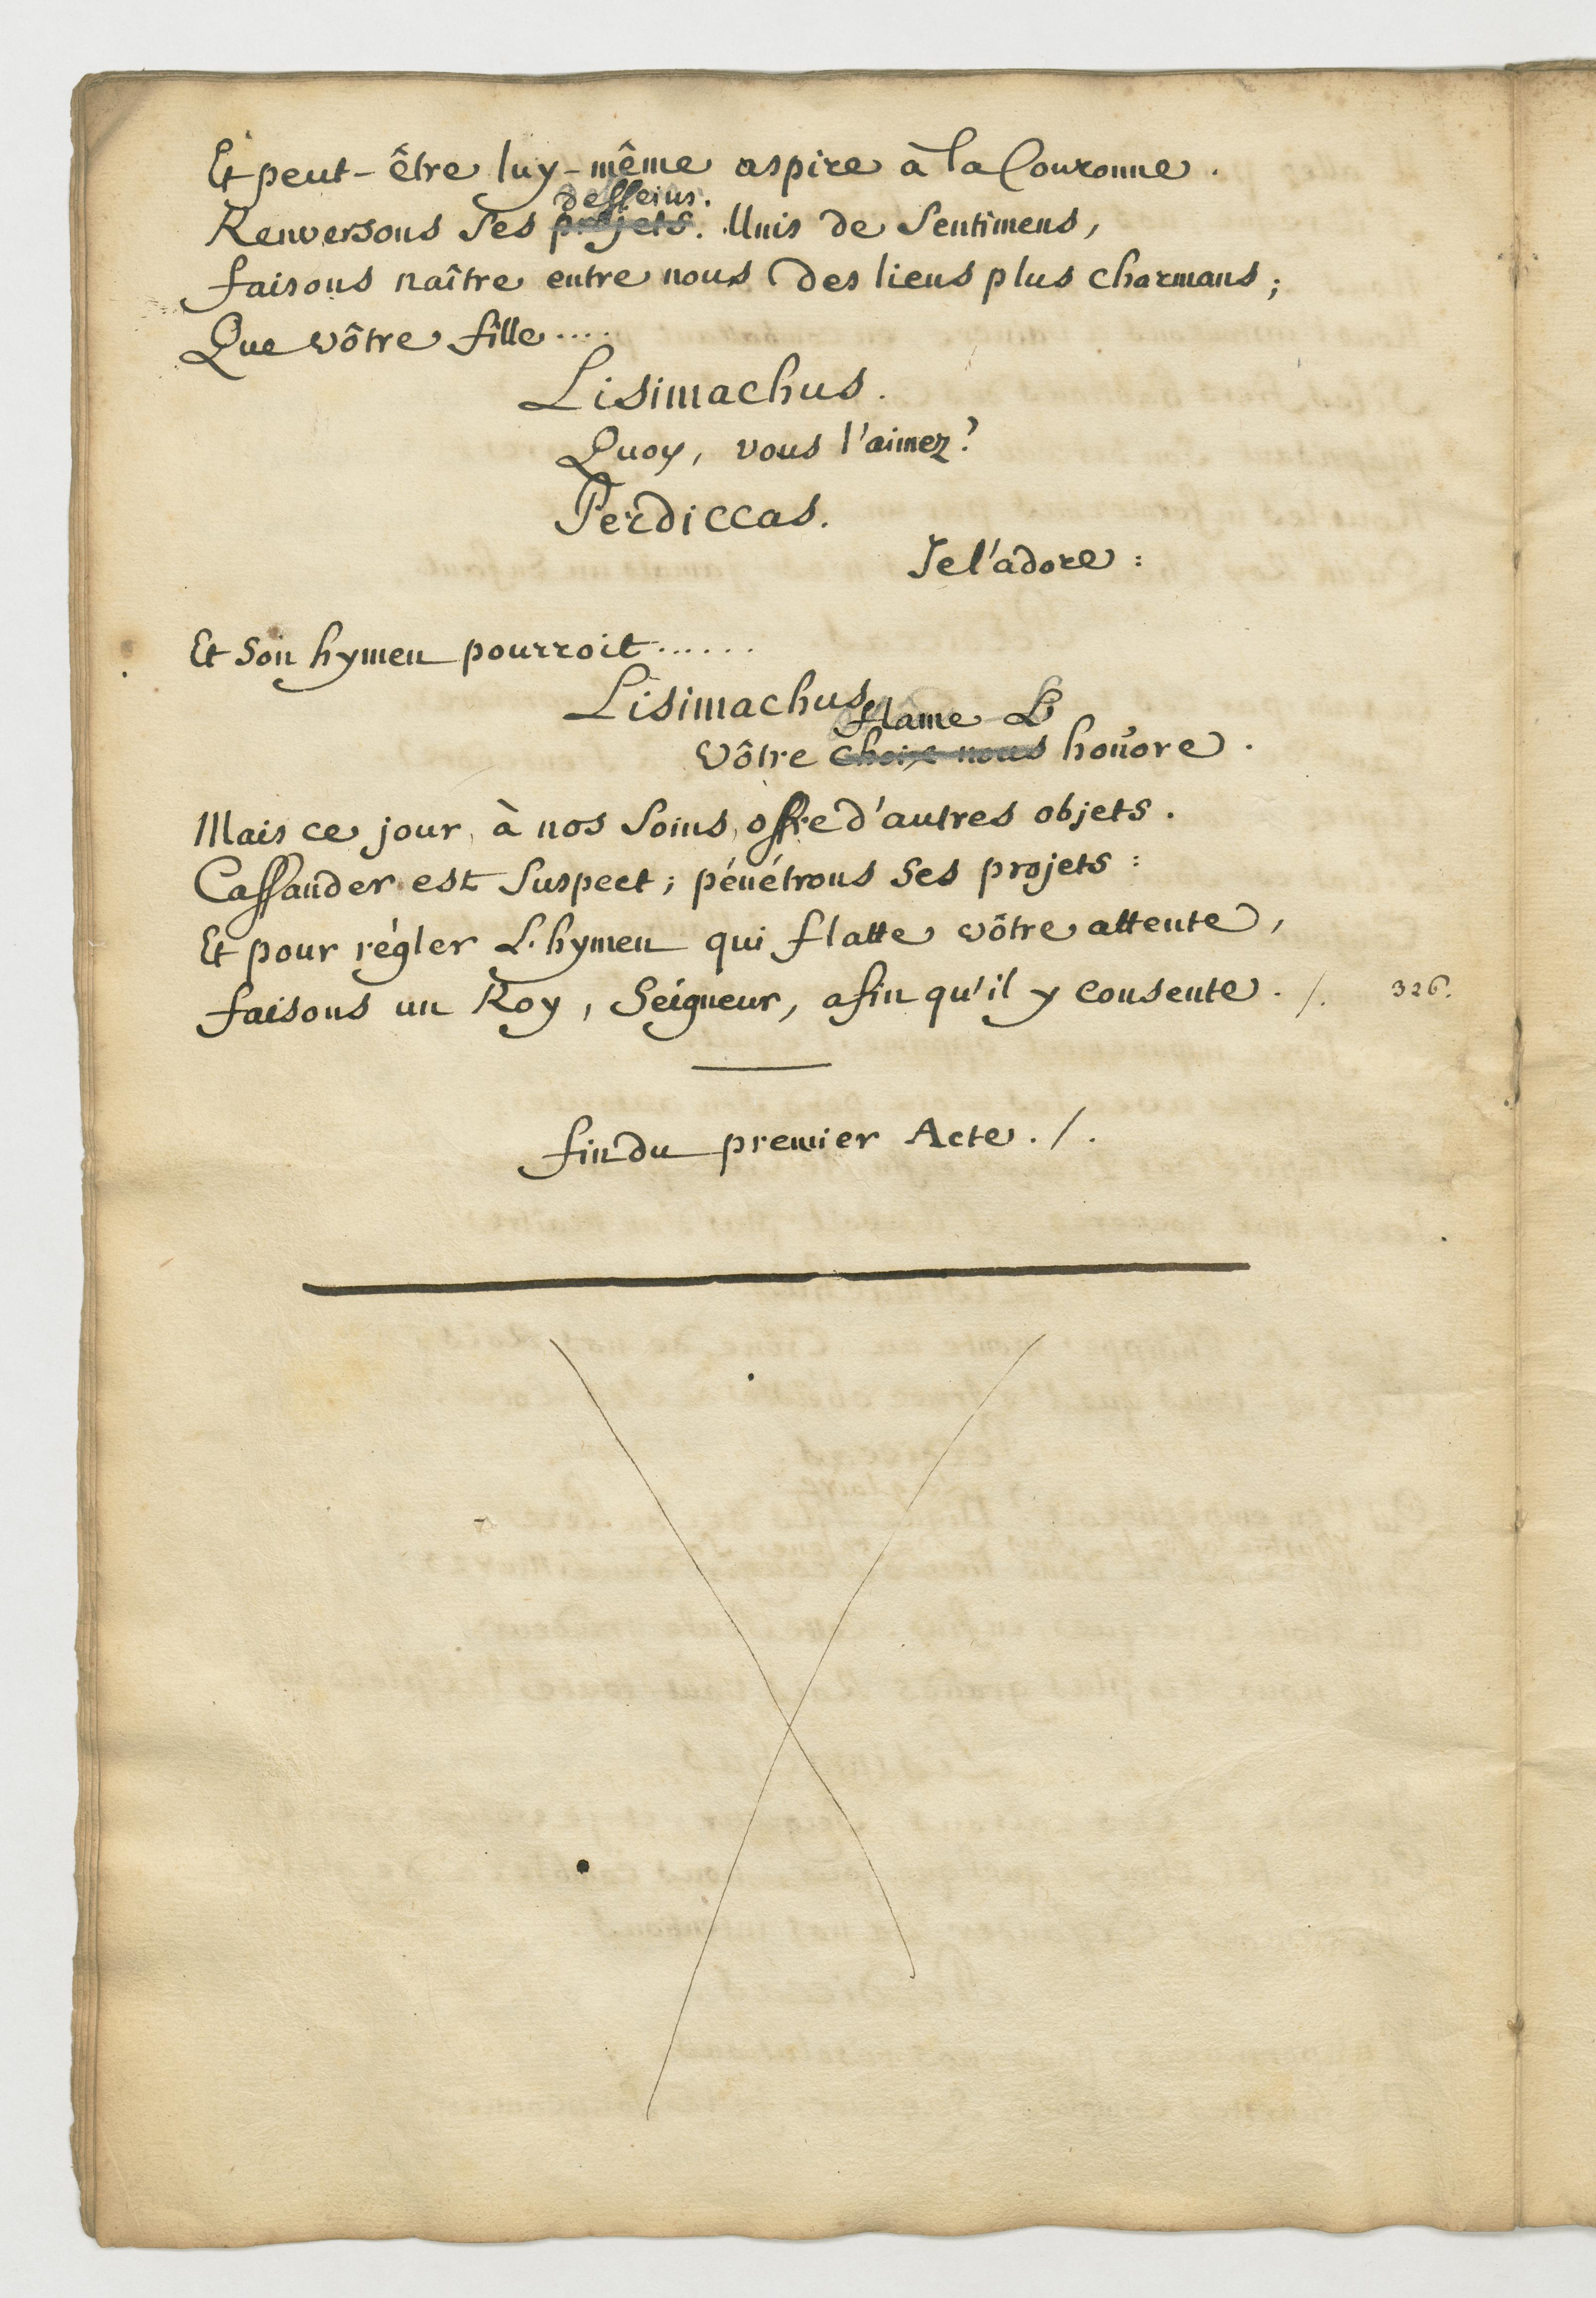 Et peut-être luy-même aspire à la Couronne.
desseins.
Renversons ses projets. Unis de sentimens,
faisons naître entre nous des liens plus charmans;
Que vôtre fille.....
Lisimachus.
Quoy, vous l'aimez?
Perdiccas.
Je l'adore:
Et son hymen pourroit......
Lisimachus
flame L
Vôtre choix nous honore.
Mais ce jour, à nos soins, offre d'autres objets.
Cassander est suspect; pénétrons ses projets:
Et pour régler L'hymen qui flatte vôtre attente,
faisons un Roy, Seigneur, afin qu'il y consente. /. 326.
fin du premier Acte. /.